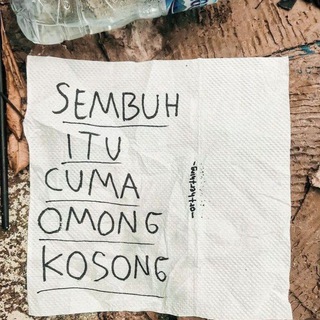 SEMBUH
ITU
CUMA
OMONG
KOSONG
-ortherthing-